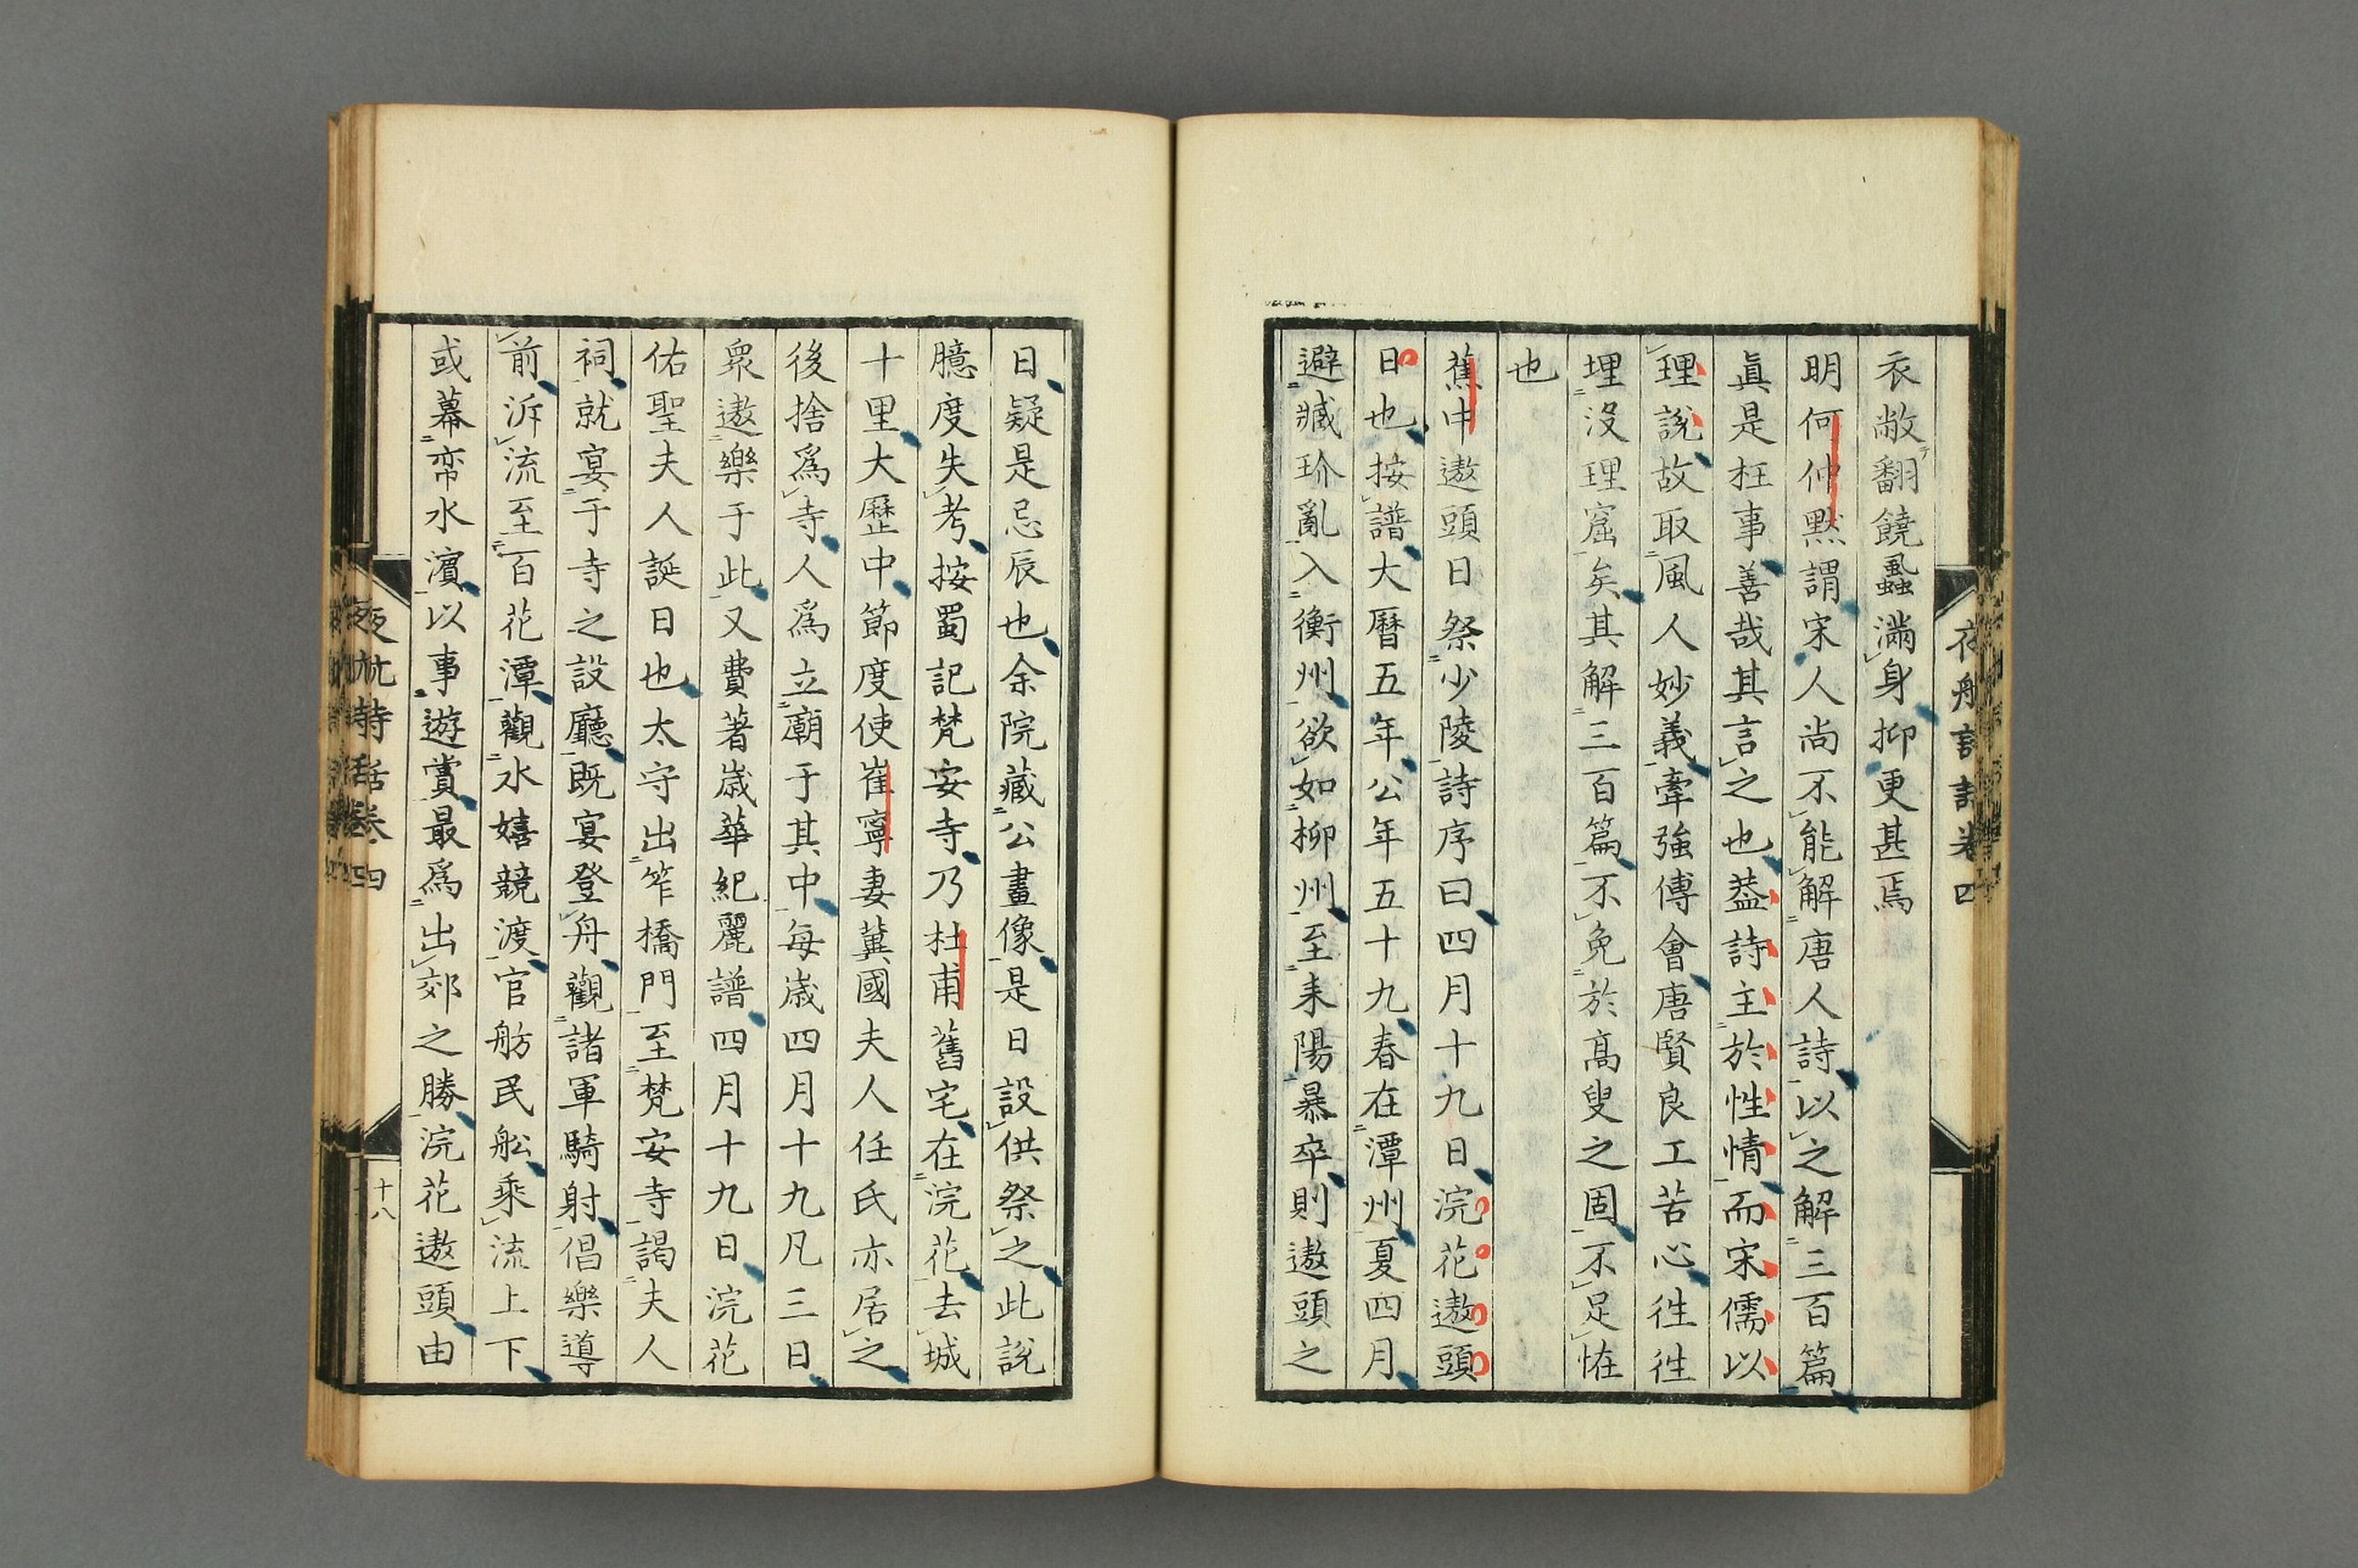 衣敝翻饒蝨滿身抑更甚焉
明何仲黙謂宋人尚不能解唐人詩以之解三百篇
眞是枉事善哉其言之也葢詩主於性情而宋儒以
理說故取風人妙義牽強傅會唐賢良工苦心徃徃
埋沒理窟矣其解三百篇不免於高叟之固不足恠
也
蕉中遨頭日祭少陵詩序曰四月十九日浣花遨頭
日也按譜大曆五年公年五十九春在潭州夏四月
避臧玠亂入衡州欲如柳州至耒陽暴卒則遨頭之
日疑是忌辰也余院藏公畫像是日設供祭之此說
臆度失考按蜀記梵安寺乃杜甫舊宅在浣花去城
十里大歷中節度使崔寧妻冀國夫人任氏亦居之
後捨爲寺人爲立廟于其中每歳四月十九凡三日
衆遨樂于此又費著歳華紀麗譜四月十九日浣花
佑聖夫人誕日也太守出笮橋門至梵安寺謁夫人
祠就宴于寺之設廳既宴登舟觀諸軍騎射倡樂導
前泝流至百花潭觀水嬉競渡官舫民舩乘流上下
或幕帟水濱以事遊賞最爲出郊之勝浣花遨頭由
夜航詩話卷四
十八